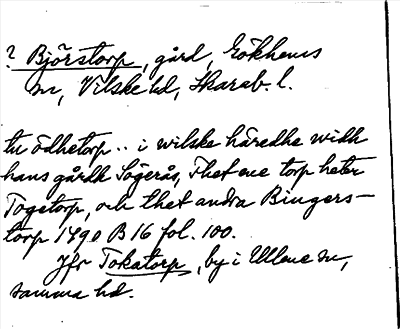 ? Björstorp, gård, Gökhems
sn, Vilske hd, Skarab. l.
tu ödhetorp .. i wilske häredhe widh
hans gårdh Sögerås, Thet ene torp heter
Togetorp, och thet andra Biugers-
torp 1490 B 16 fol. 100.
Jfr Tokatorp, by i Ullene sn,
samma hd.